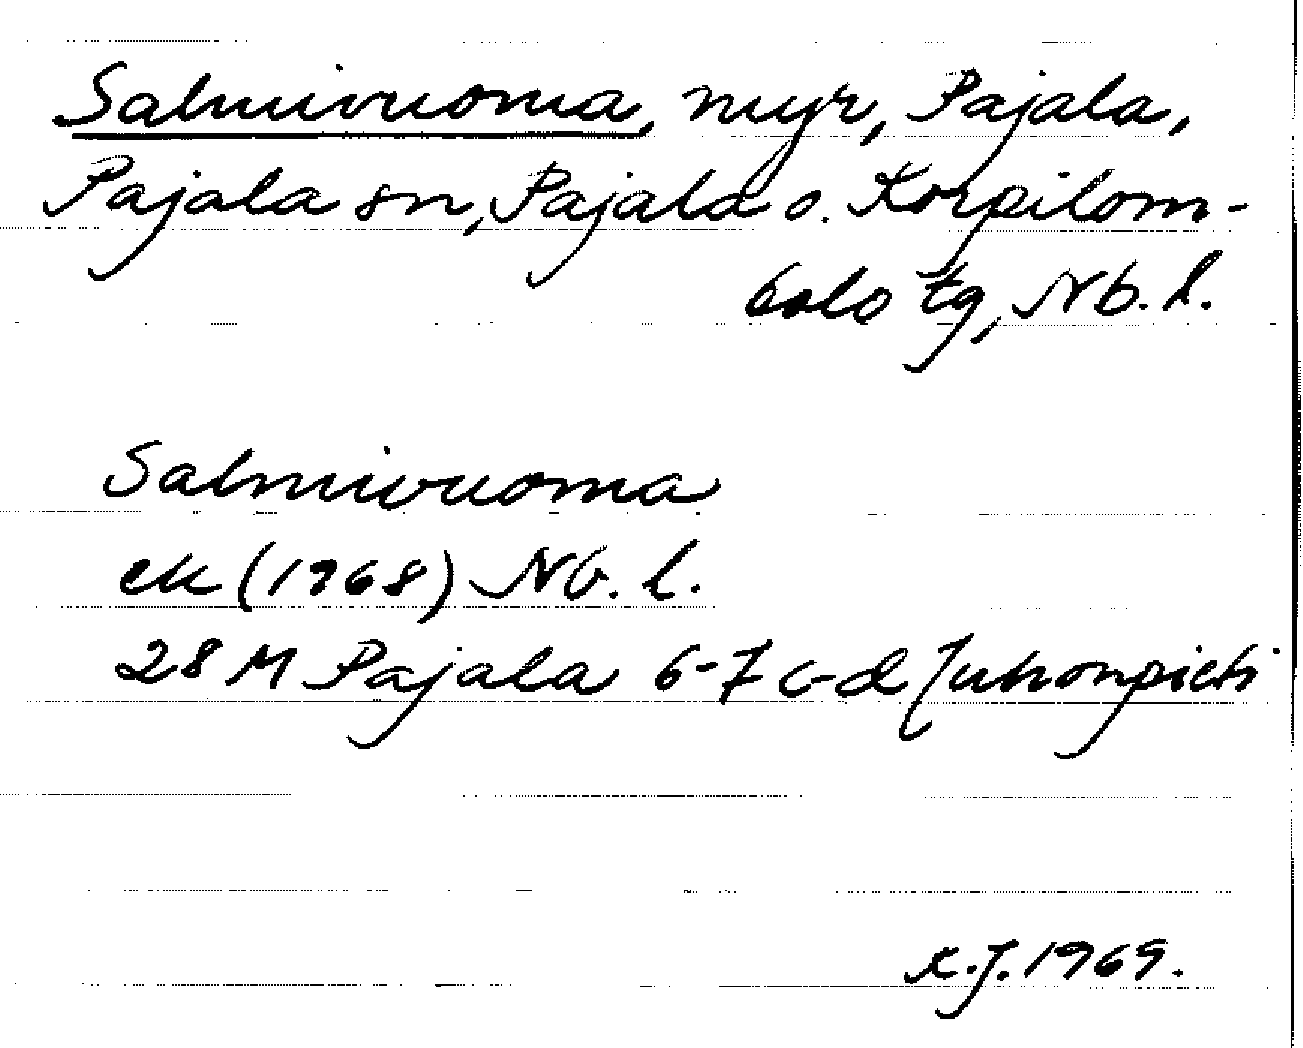 Salmivuoma, myr, Pajala,
Pajala sn, Pajala o. Korpilom-
bolo tg, Nb. l.
Salmivuoma
ek (1968) Nb. l.
28 M Pajala 6-7 c-d Juhonpieti
K.J. 1969.